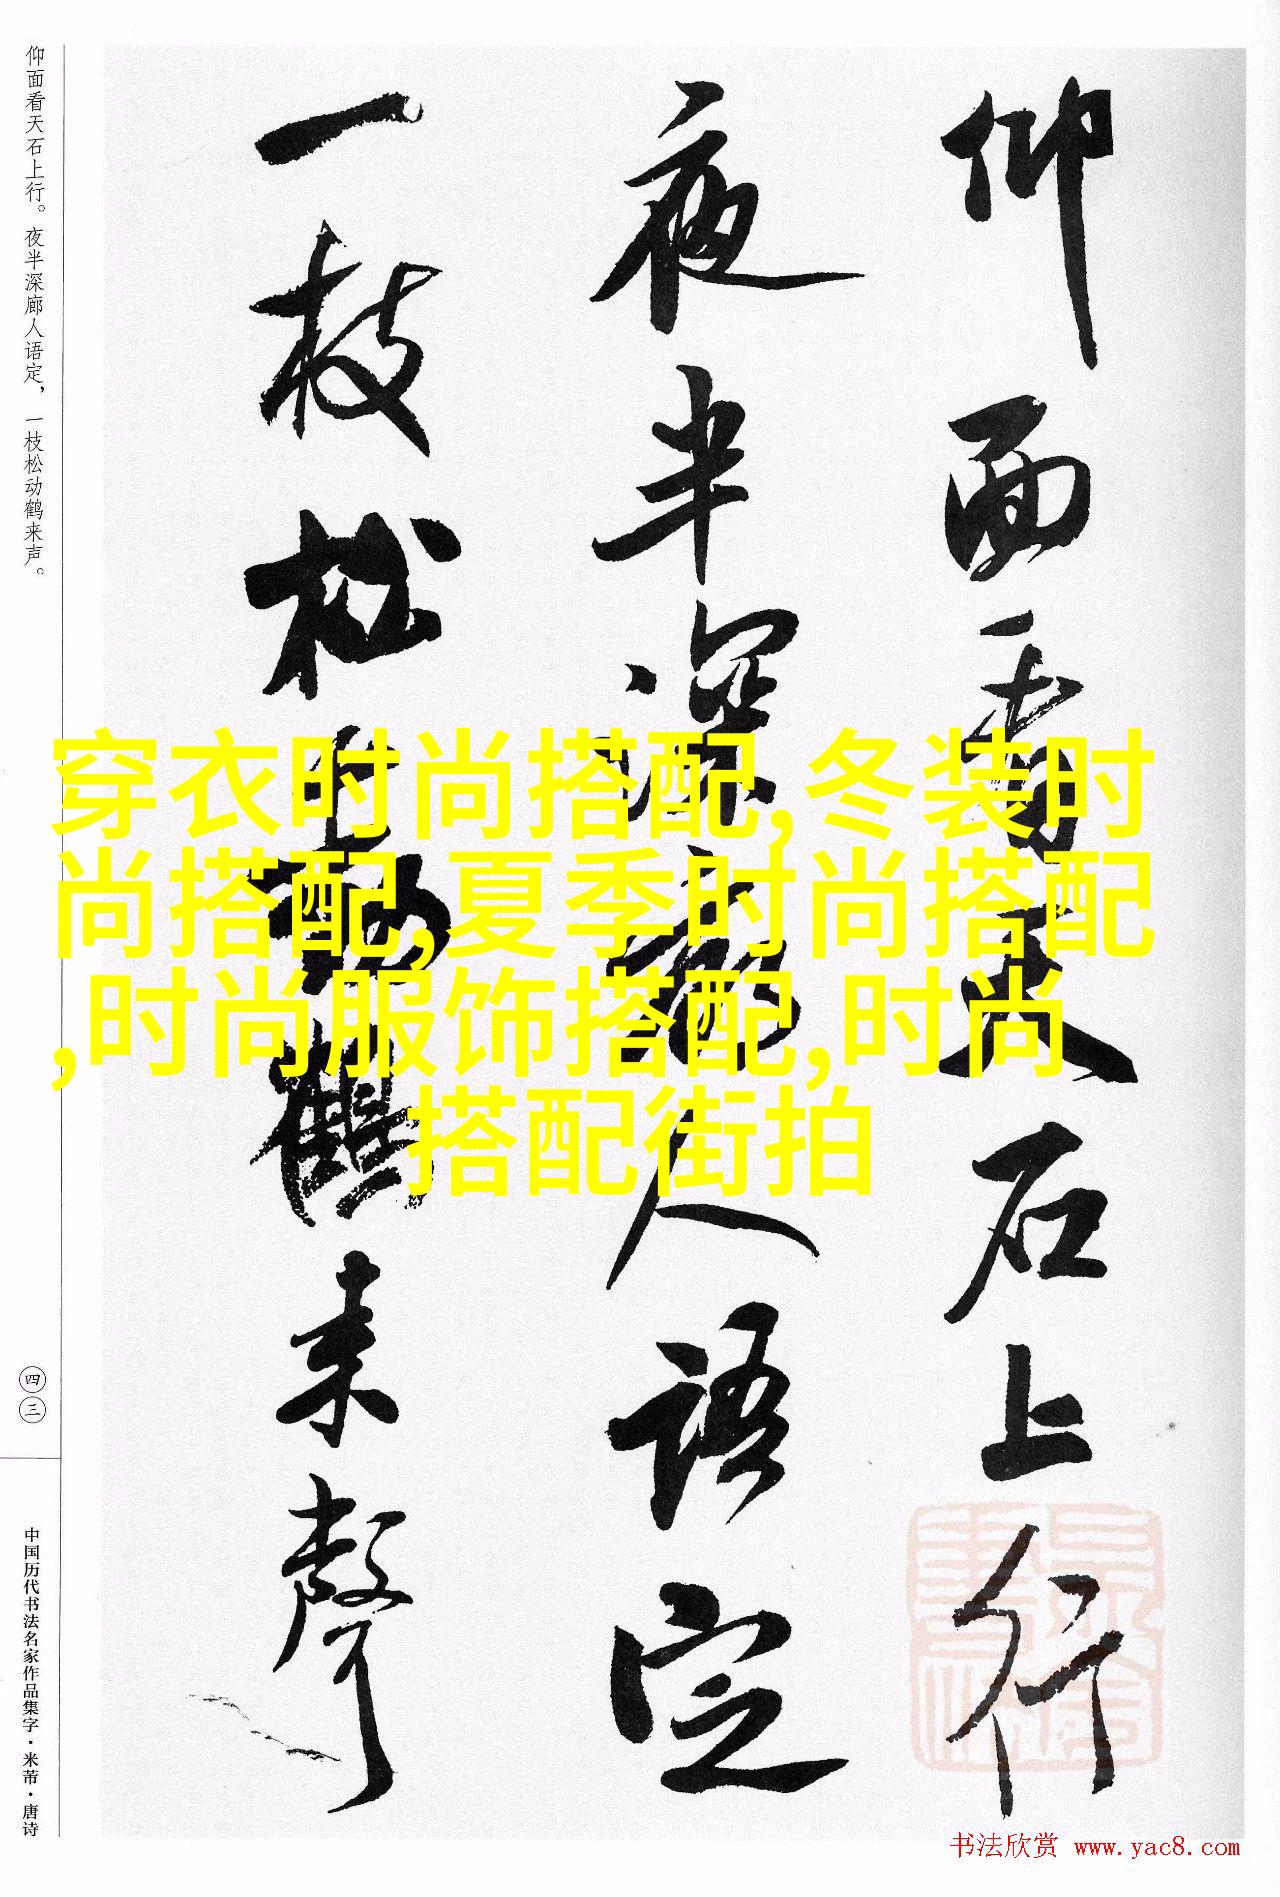 仰面看天石上行
夜半深廊人语定
一枝松动鹤来聲
仰面看天石上行。夜半深廊人语定，一枝松动鹤来声。
四三
中国历代书法名家作品集字·米芾·唐诗
穿衣时尚搭配,冬装时
尚搭配,夏季时尚搭配
,时尚服饰搭配,时尚
搭配街拍
书法欣赏 www.yac8.com